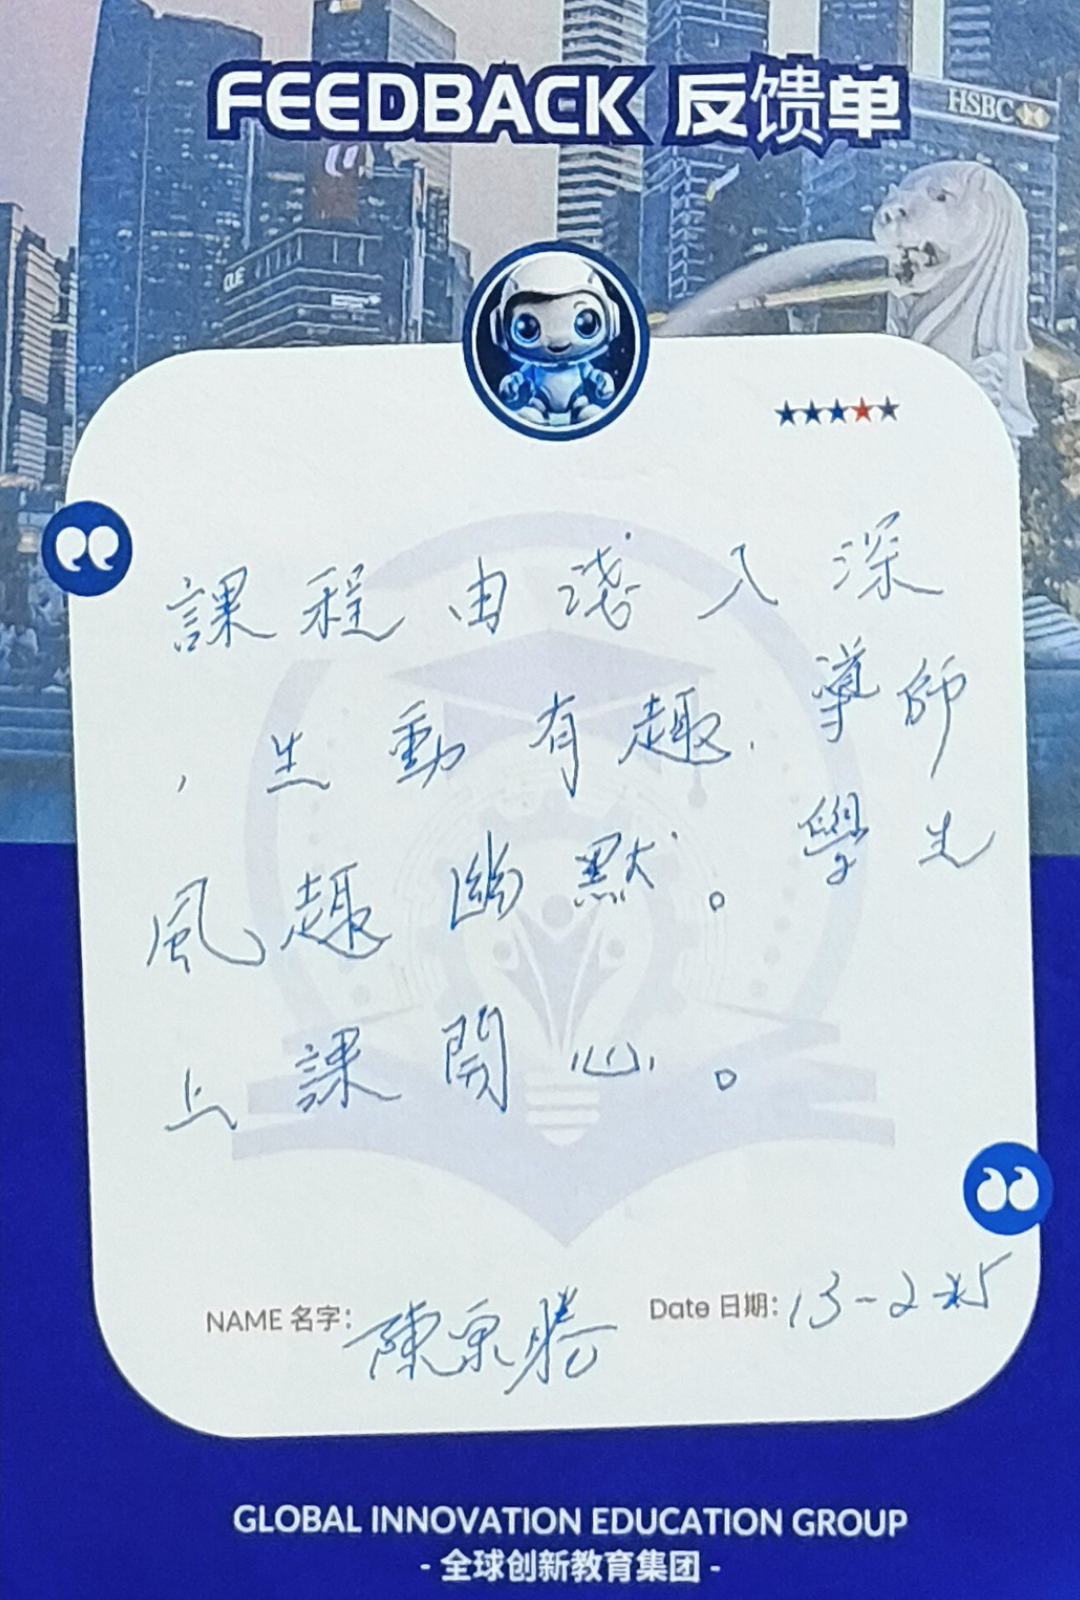 FEEDBACK 反馈单
HSBC
課程由淺入深
，生動有趣，導師
風趣幽默。學生
上課開心。
NAME 名字: 陳
Date 日期: 13-2-25
GLOBAL INNOVATION EDUCATION GROUP
- 全球创新教育集团 -